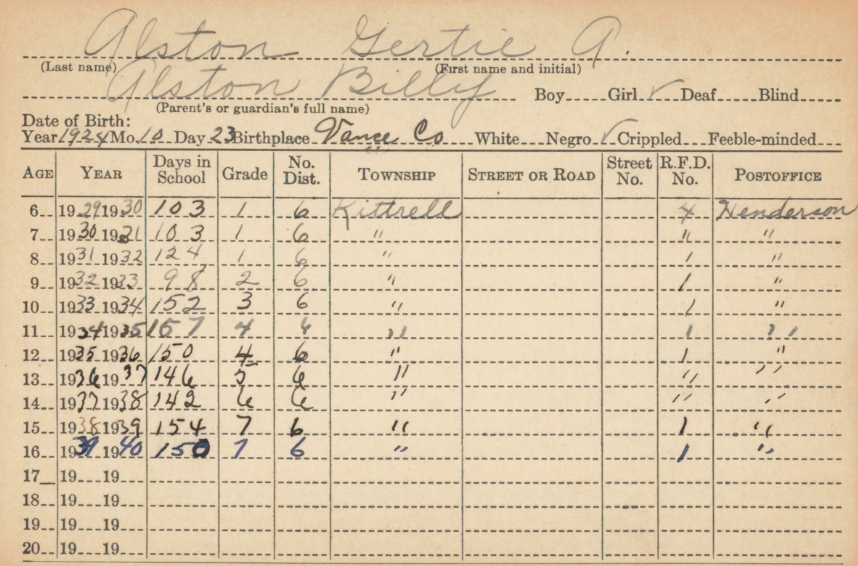 Alston Gertie A.
(Last name) (First name and initial)
Alston Billy Boy Girl ✓ Deaf Blind
(Parent's or guardian's full name)
Date of Birth:
Year 1924 Mo. 10 Day 23 Birthplace Vance Co White Negro ✓ Crippled Feeble-minded
AGE YEAR Days in School Grade No. Dist. TOWNSHIP STREET OR ROAD Street No. R.F.D. No. POSTOFFICE
6 1929 1930 103 1 6 Kittrell 4 Henderson
7 1930 1931 103 1 6 " " "
8 1931 1932 124 1 6 " 1 "
9 1932 1933 98 2 6 " 1 "
10 1933 1934 152 3 6 " 1 "
11 1934 1935 157 4 6 " 1 "
12 1935 1936 150 4 6 " 1 "
13 1936 1937 146 5 6 " " "
14 1937 1938 142 6 6 " " "
15 1938 1939 154 7 6 " 1 "
16 1939 1940 150 7 6 " 1 "
17 19 19
18 19 19
19 19 19
20 19 19